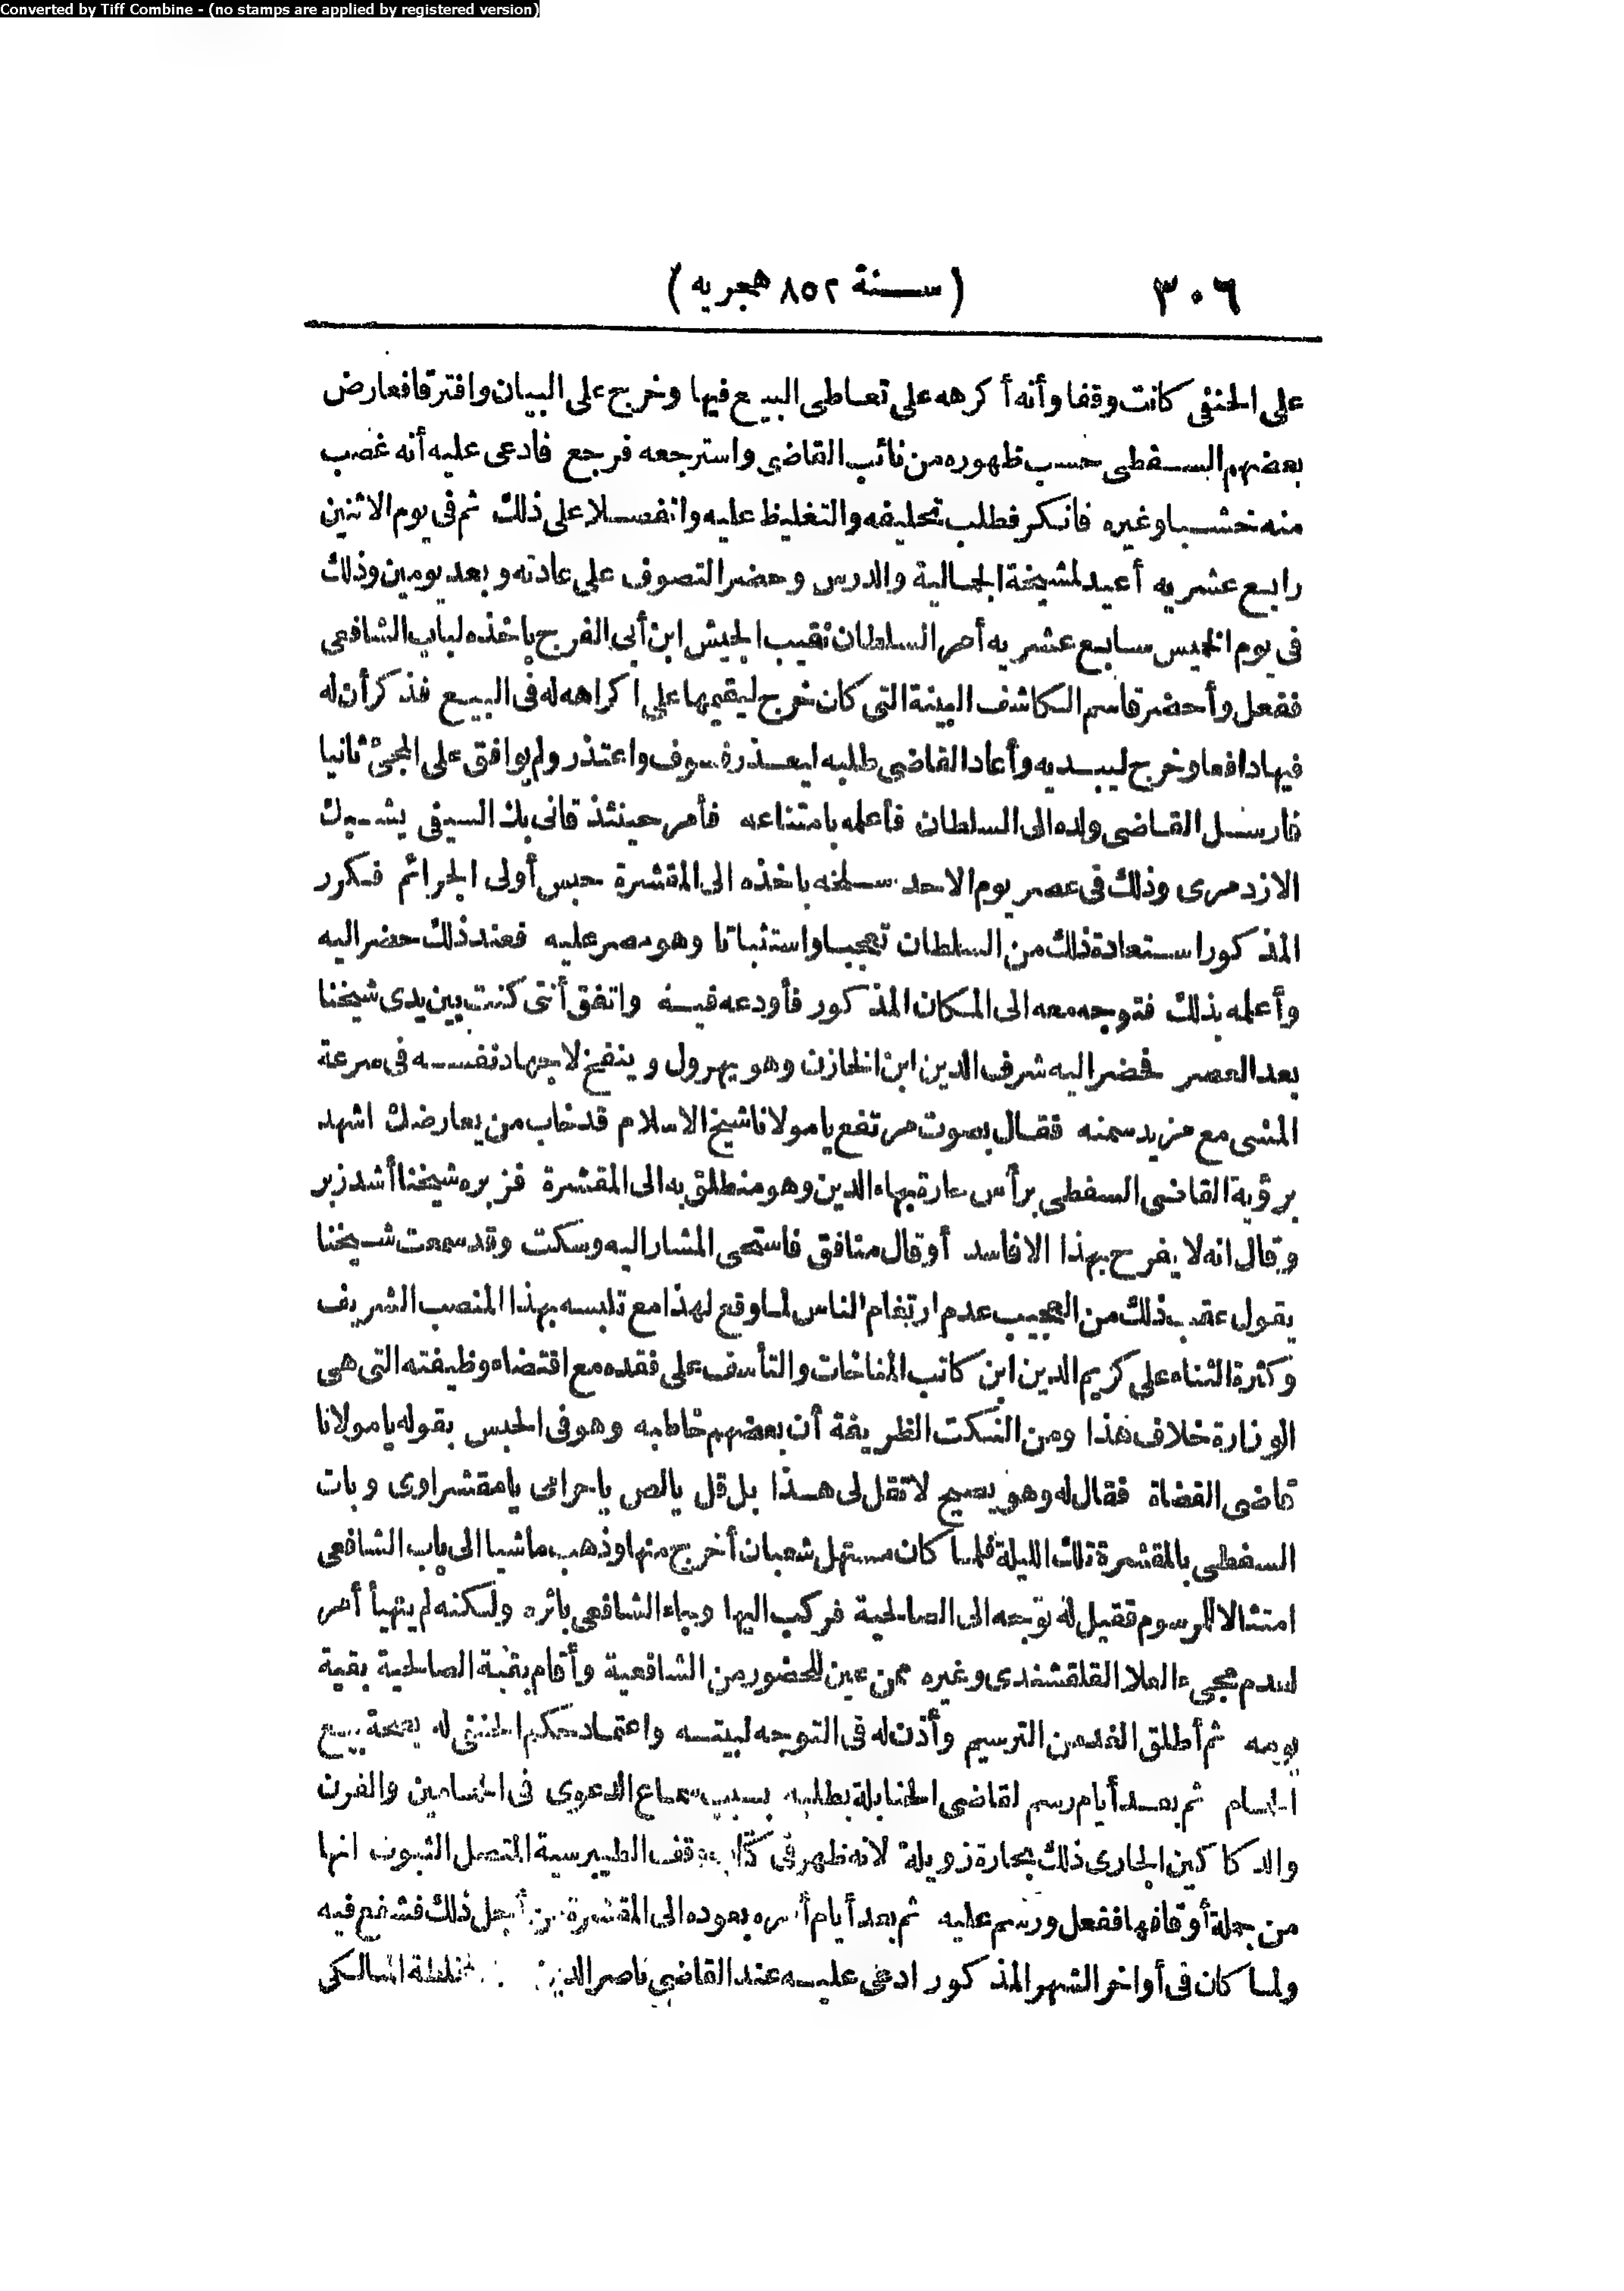 Converted by Tiff Combine - (no stamps are applied by registered version)
٣٠٦ (سنة ٨٥٢ هجريه)
على الحنفى كانت وقفا وأنه أكرهه على تعاطى البيع فيها وخرج على البيان وافترقا فعارض
بعضهم السفطى حسب ظهوره من نائب القاضى واسترجعه فرجع فادعى عليه أنه غصب
منه خشبا وغيره فانكر فطلب تحليفه والتغليظ عليه وانفصلا على ذلك ثم فى يوم الاثنين
رابع عشريه أعيد لمشيخة الجمالية والدرس وحضر التصوف على عادته وبعد يومين وذلك
فى يوم الخميس سابع عشريه أمر السلطان نقيب الجيش ابن أبى الفرج باخذه لباب الشافعى
ففعل وأحضر قاسم الكاشف البينة التى كان خرج ليقيمها على اكراهه له فى البيع فذكر أن له
فيها دافعا وخرج ليبديه وأعاد القاضى طلبه ليعذره فسوف واعتذر ولم يوافق على المجئ ثانيا
فارسل القاضى ولده الى السلطان فأعلمه بامتناعه فأمر حينئذ قانى بك السيفى يشبك
الازدمرى وذلك فى عصر يوم الاحد سلخه باخذه الى المقشرة حبس أولى الجرائم فكرر
المذكور استعادة ذلك من السلطان تعجبا واستثباتا وهو مصر عليه فعند ذلك حضر اليه
وأعلمه بذلك فتوجه معه الى المكان المذكور فأودعه فيه واتفق أننى كنت بين يدى شيخنا
بعد العصر فحضر اليه شرف الدين ابن الخازن وهو يهرول وينفخ لاجهاد نفسه فى سرعة
المشى مع مزيد سمنه فقال بصوت مرتفع يا مولانا شيخ الاسلام قد خاب من يعارضك اشهد
برؤية القاضى السفطى برأس حارة بهاء الدين وهو منطلق به الى المقشرة فزبره شيخنا أشد زبر
وقال انه لا يفرح بهذا الا فاسد أو قال منافق فاستحى المشار اليه وسكت وقد سمعت شيخنا
يقول عقب ذلك من العجيب عدم ارتغام الناس لما وقع لهذا مع تلبسه بهذا المنصب الشريف
وكثرة الثناء على كريم الدين ابن كاتب المناخات والتأسف على فقده مع اقتضاء وظيفته التى هى
الوزارة خلاف هذا ومن النكت الظريفة أن بعضهم خاطبه وهو فى الحبس بقوله يا مولانا
قاضى القضاة فقال له وهو يصيح لا تقل لى هذا بل قل يالص يا حرامى يا مقشراوى وبات
السفطى بالمقشرة تلك الليلة فلما كان مستهل شعبان أخرج منها وذهب ماشيا الى باب الشافعى
امتثالا للمرسوم فقيل له توجه الى الصالحية فركب اليها وجاء الشافعى باثره ولكنه لم يتهيأ أمر
لعدم مجىء العلا القلقشندى وغيره ممن عين للحضور من الشافعية وأقام بقبة الصالحية بقية
يومه ثم أطلق الغد من الترسيم وأذن له فى التوجه لبيته واعتماد حكم الحنفى له بصحة بيع
الحمام ثم بعد أيام رسم لقاضى الحنابلة بطلبه بسبب سماع الدعوى فى الحمامين والفرن
والدكاكين الجارى ذلك بحارة زويلة لانه ظهر فى كتاب وقف الطيبرسية المتصل الثبوت انها
من جملة أوقافها ففعل ورسم عليه ثم بعد أيام أمره بعوده الى المقشرة من أجل ذلك فشفع فيه
ولما كان فى أواخر الشهر المذكور ادعى عليه عند القاضى ناصر الدين المخلطة المالكى